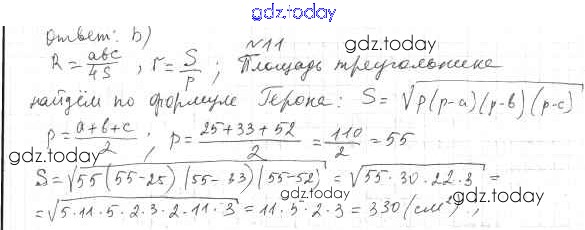 gdz.today
Ответ: b)
№11
gdz.today
R = abc/4S, r = S/p; Площадь треугольника
найдём по формуле Герона: S = √p(p-a)(p-b)(p-c)
gdz.today
p = (a+b+c)/2; p = (25+33+52)/2 = 110/2 = 55
gdz.today
S = √55(55-25)(55-33)(55-52) = √55·30·22·3 =
gdz.today
= √5·11·5·2·3·2·11·3 = 11·5·2·3 = 330 (см²).;
gdz.today